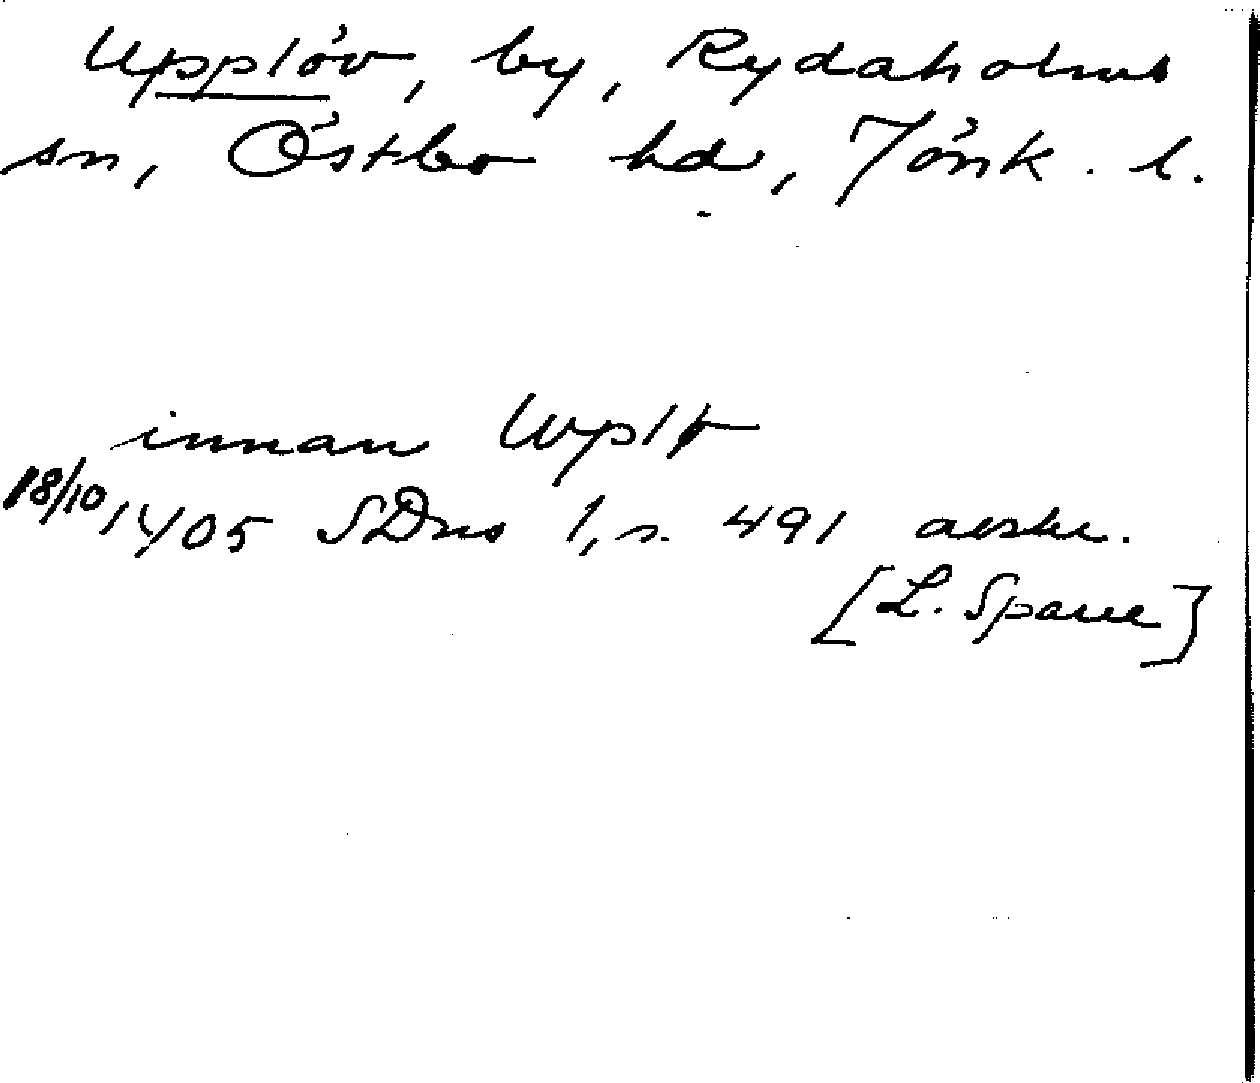 Upplöv, by, Rydaholms
sn, Östbo hd, Jönk. l.
innan Wpløf
18/10 1405 SDns 1, s. 491 avskr.
[L. Sparre]